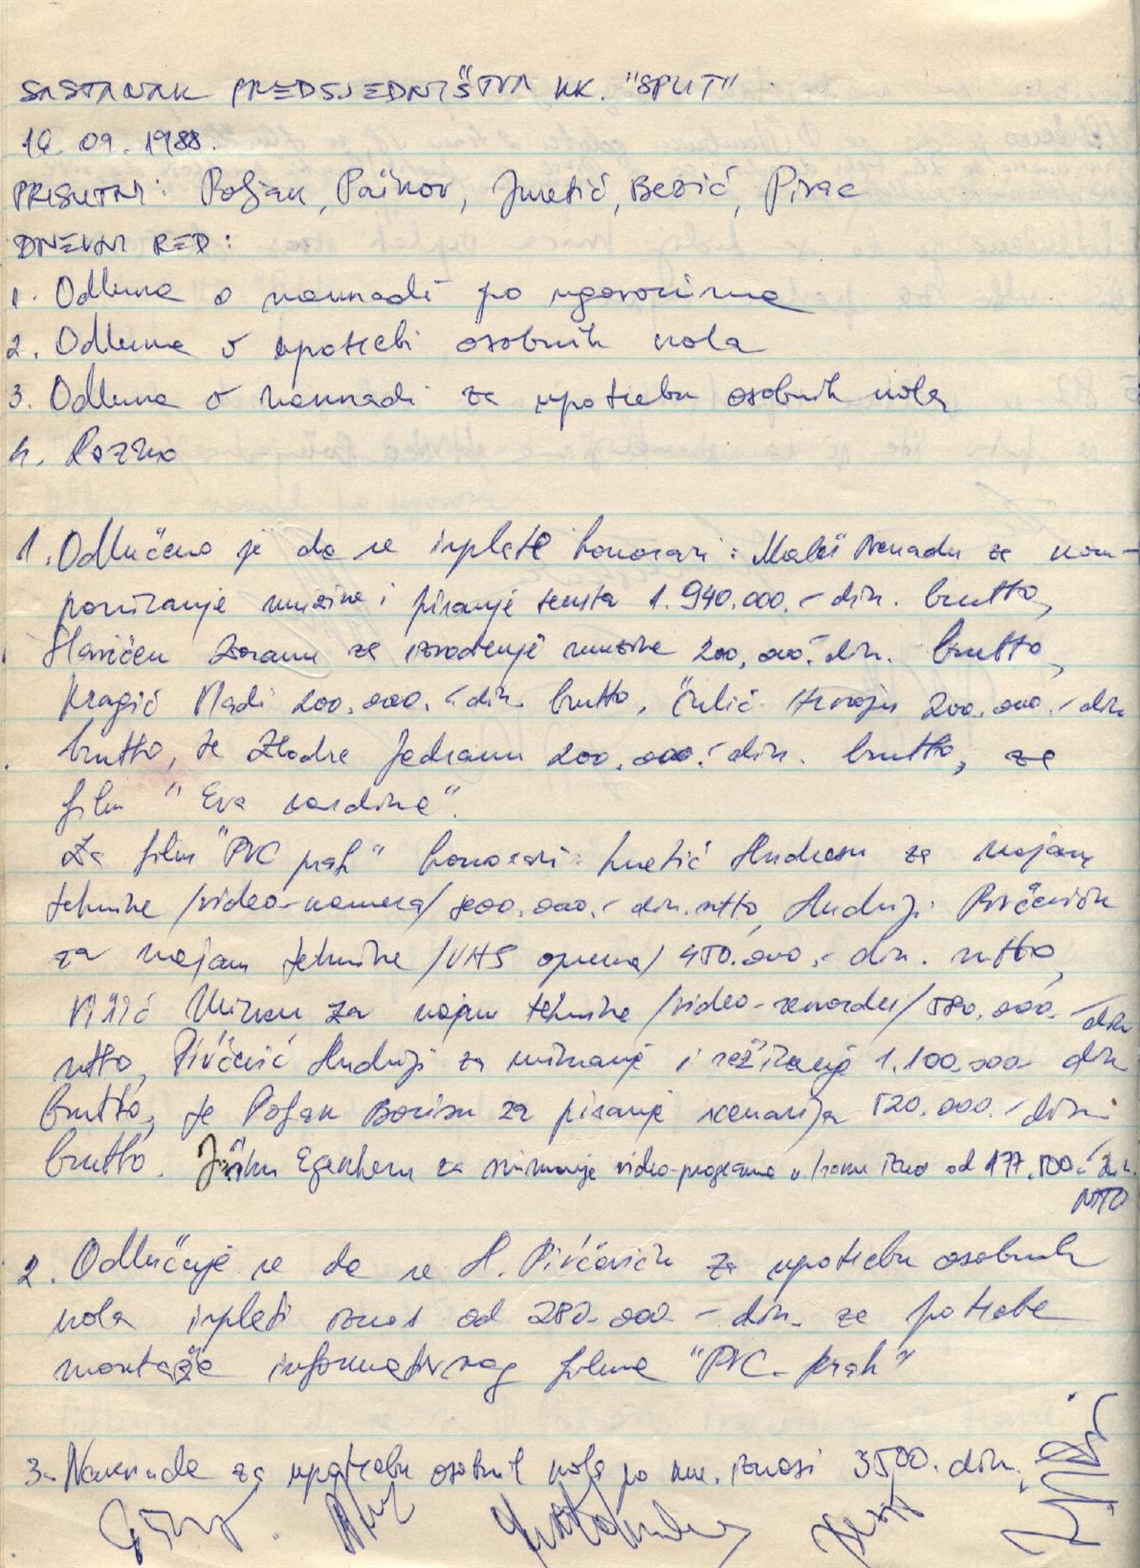 SASTANAK PREDSJEDNIŠTVA KK. "SPLIT"
09. 1988.
PRISUTNI: Poljak, Paškov, Juretić, Bezić, Pivac
DNEVNI RED:
1. Odluka o naknadi po ugovorima
2. Odluka o upotrebi osobnih kola
3. Odluka o naknadi za upotrebu osobnih kola
4. Razno
1. Odlučeno je da se isplate honorari: Maleš Nenadu za kom-
poniranje muzike i pisanje teksta 1.940.000.- din. brutto,
Zoranu za izvođenje muzike 200.000.- din. brutto,
Kragić Vladi 200.000.- din. brutto, Čulić Hrvoju 200.000.- din
brutto, te Zlodre Jadranu 200.000.- din. brutto, za
film "Eva sardina".
Za film "PVC prah" honorari: Andreu za najam
tehnike /video-kamera/ .000.- din. netto, Andriji Pivčeviću
za najam tehnike /VHS oprema/ 450.000.- din. netto,
Mirku za najam tehnike /video-rekorder/ 580.000.- din
netto, Pivčević Andriji za snimanje i režiranje 1.100.000 din
brutto, te Poljak Borisu za pisanje scenarija 520.000.- din
brutto. Jošku za snimanje video-programa u iznos od 177.500.- din.
NTTO
2. Odlučuje se da se A. Pivčeviću za upotrebu osobnih
kola isplati iznos od 280.000 - din. za potrebe
montaže informativnog filma "PVC-prah"
3. Naknada za upotrebu osobnih kola po km. iznosi 3500. din.